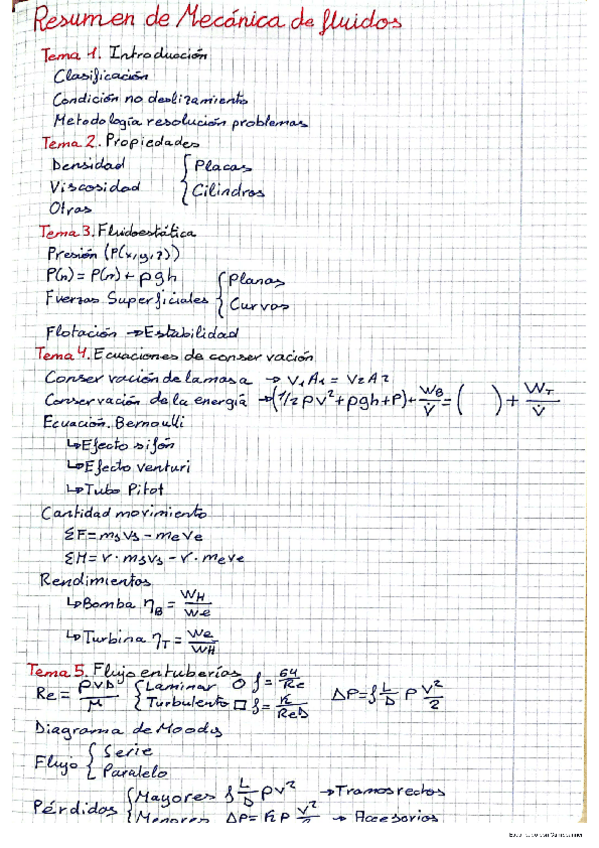 Resumen de Mecánica de fluidos
Tema 1. Introducción
Clasificación
Condición no deslizamiento
Metodología resolución problemas
Tema 2. Propiedades
Densidad { Placas
Viscosidad { Cilindros
Otras
Tema 3. Fluidoestática
Presión (P(x,y,z))
P(n) = P(n) + ρgh { Planas
Fuerzas Superficiales { Curvas
Flotación → Estabilidad
Tema 4. Ecuaciones de conservación
Conservación de la masa → V1A1 = V2A2
Conservación de la energía → (1/2ρv²+ρgh+P)+ẆB/V̇ = ( ) + ẆT/V̇
Ecuación. Bernoulli
↳Efecto sifón
↳Efecto venturi
↳Tubo Pitot
Cantidad movimiento
ΣF = msvs - meve
ΣH = r · msvs - r · meve
Rendimientos
↳Bomba ηB = WH/We
↳Turbina ηT = We/WH
Tema 5. Flujo en tuberías
Re = ρvD/μ { Laminar O f = 64/Re ΔP = f L/D ρ v²/2
{ Turbulento □ f = K/ReD
Diagrama de Moody
Flujo { Serie
{ Paralelo
Pérdidas { Mayores f L/D ρv² → Tramos rectos
{ Menores ΔP = K ρ v²/2 → Accesorios